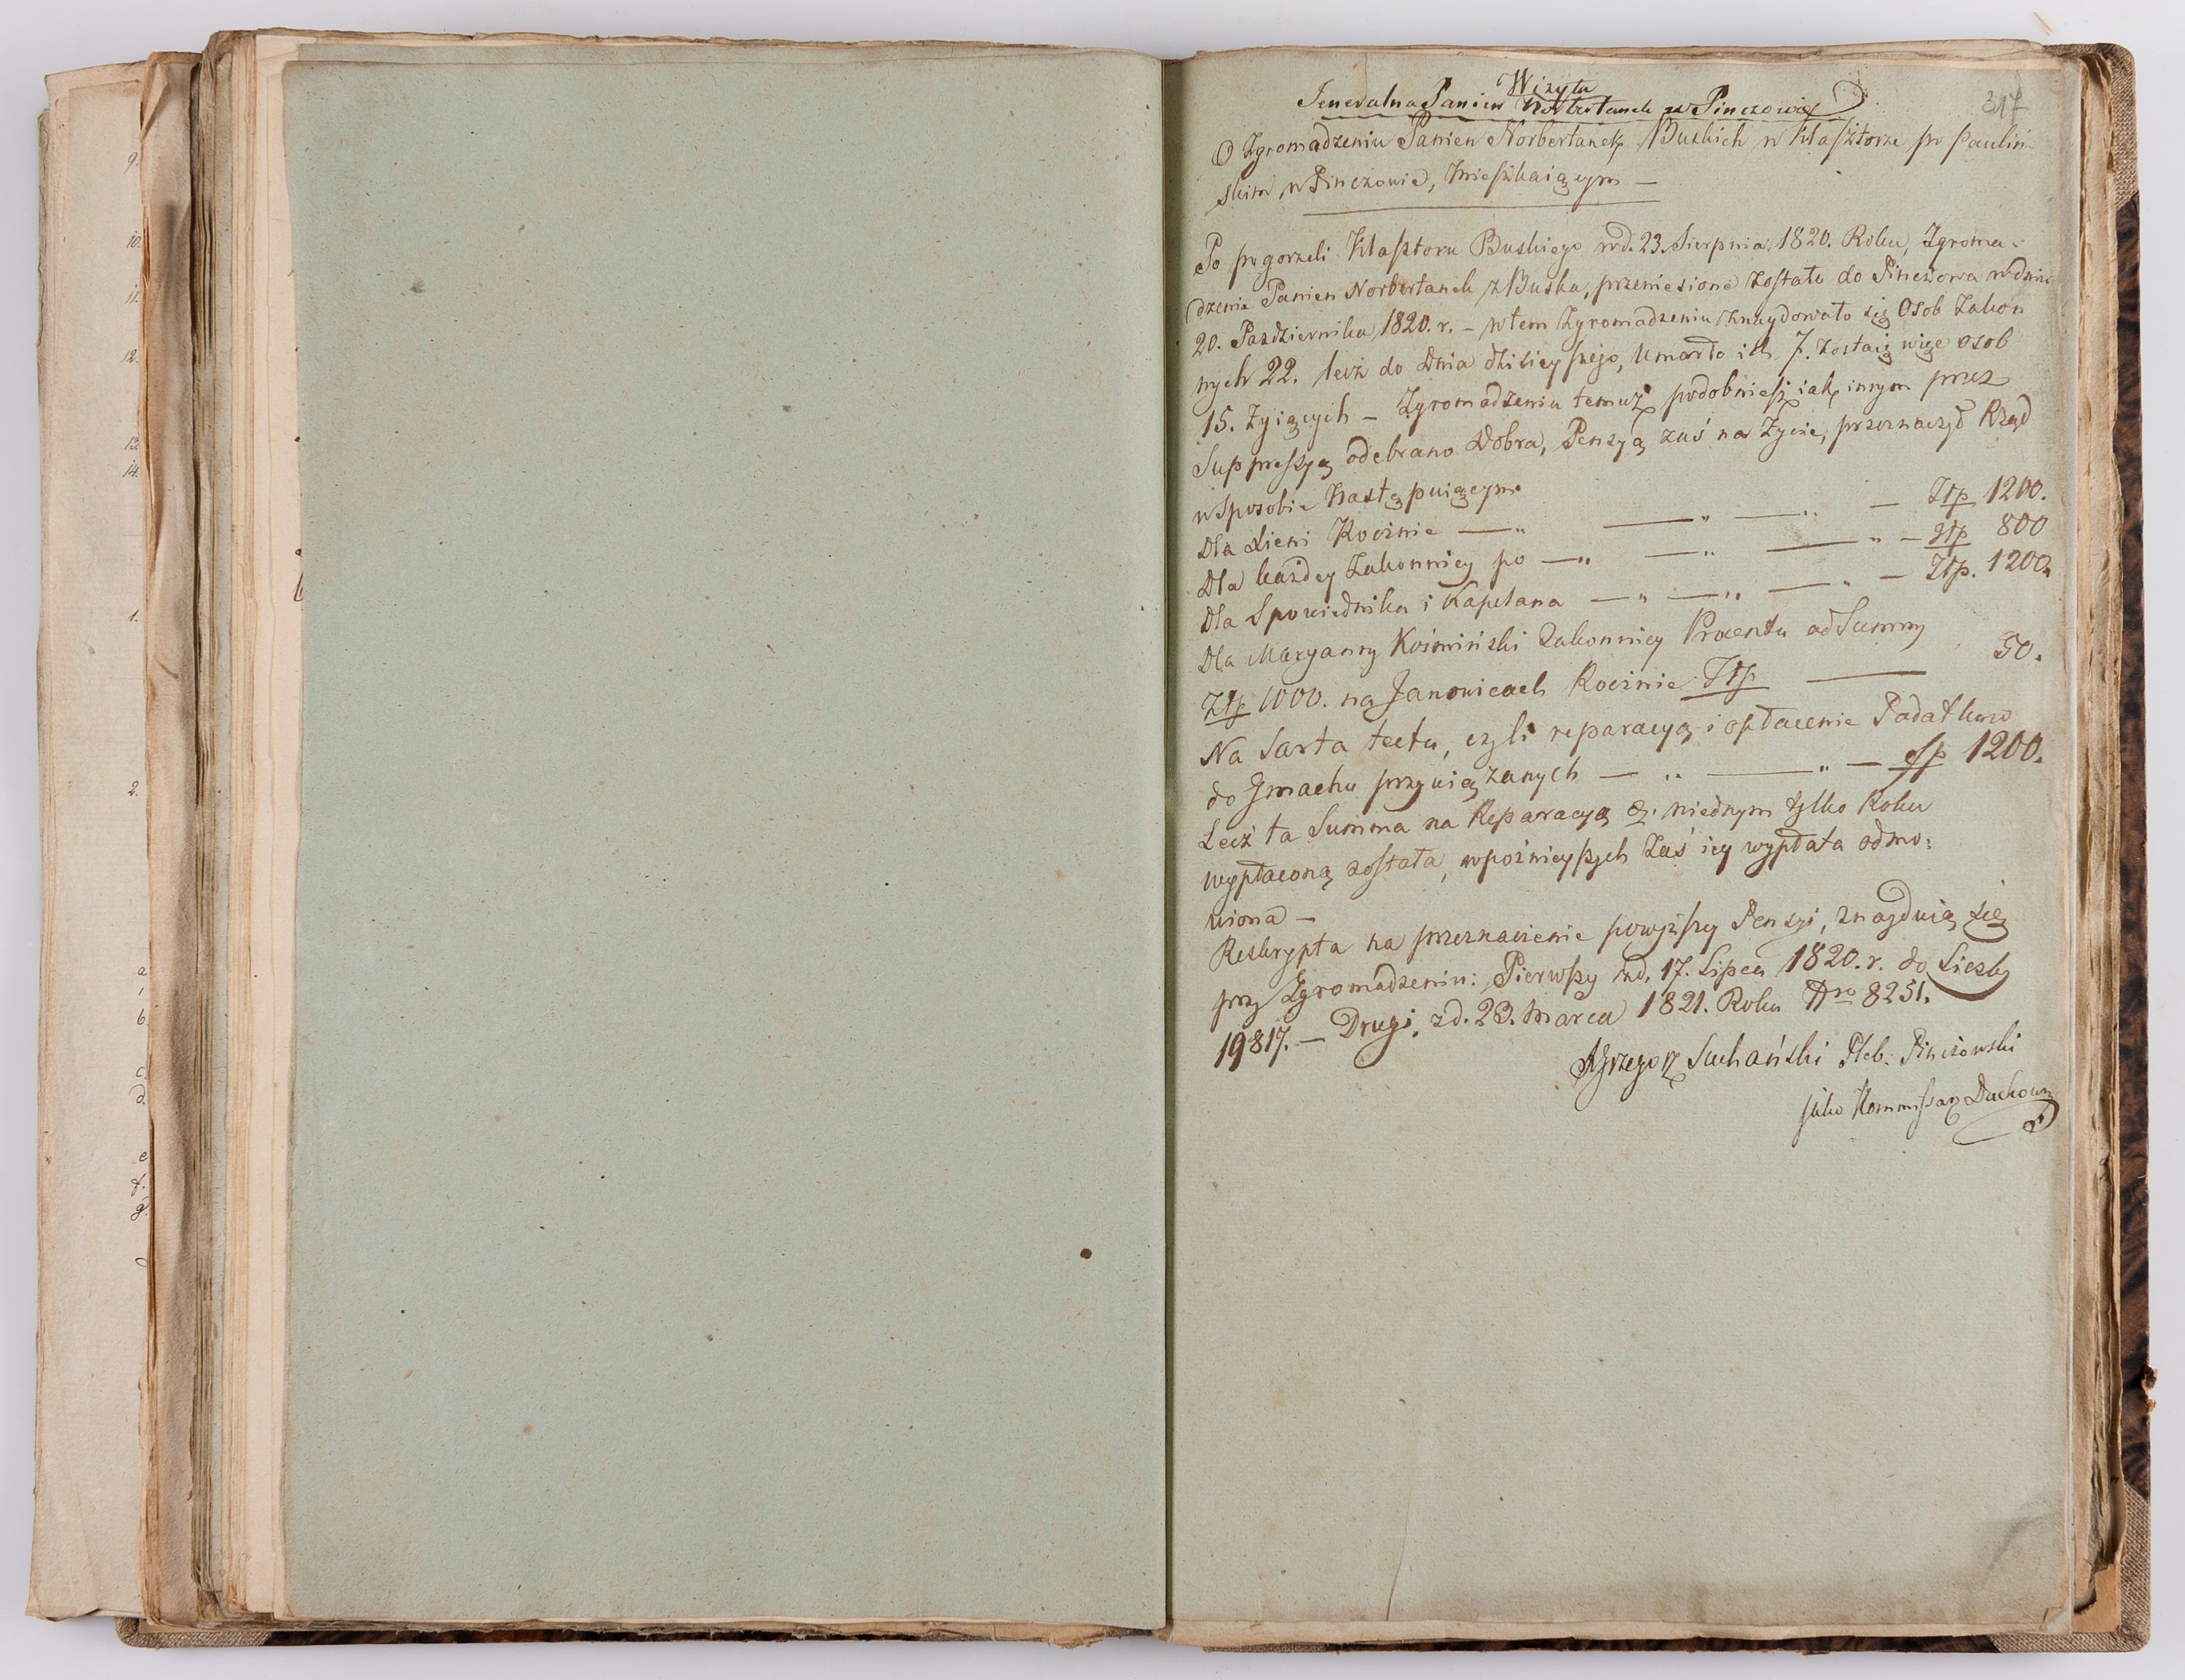 9.
10.
11.
12.
13.
14.
1.
2.
a
b
c.
d.
e
f.
g.
Wizyta
Jeneralna Panien Norbertanek w Pinczowie
317
O Zgromadzeniu Panien Norbertanek Buskich w Klasztorze po Pauliń-
skim w Pinczowie, mieszkaiącym —
Po pogorzeli Klasztoru Buskiego w d. 23. Sierpnia 1820. Roku, Zgroma-
dzenie Panien Norbertanek z Buska, przeniesione zostało do Pinczowa w dniu
20. Pazdziernika 1820. r. – w tem Zgromadzeniu znaydowało się Osob Zakon
nych 22. lecz do Dnia dzisieyszego, umarło ich 7. zostaią więc osob
15. żyiących – Zgromadzeniu temuż podobnież iak innym przez
Suppressyą odebrano Dobra, Pensyą zaś na życie, przeznaczył Rząd
w sposobie następuiącym
Dla Xieni Rocznie — „ — „ — „ — Złp 1200.
Dla każdey Zakonnicy po — „ — „ — „ — Złp 800
Dla Spowiednika i Kapelana — „ — „ — „ — Złp. 1200.
Dla Maryanny Kośmiński Zakonnicy Procentu od Summy
Złp 1000. na Janowicach Rocznie Złp — 50.
Na Sarta tecta, czyli reparacyą i opłacenie Podatkow
do Gmachu przywiązanych — „ — „ — złp 1200.
Lecz ta Summa na Reparacyą w iednym tylko Roku
wypłaconą została, w poźnieyszych zaś iey wypłata odmo:
wiona –
Reskrypta na przeznaczenie powyższy Pensyi, znayduią się
przy Zgromadzeniu: Pierwszy z d. 17. Lipca 1820. r. do Liczby
19817. — Drugi, z d. 23. Marca 1821. Roku Nro 8251.
X Grzegorz Suchański Pleb. Pinczowski
jako Kommissarz Duchown